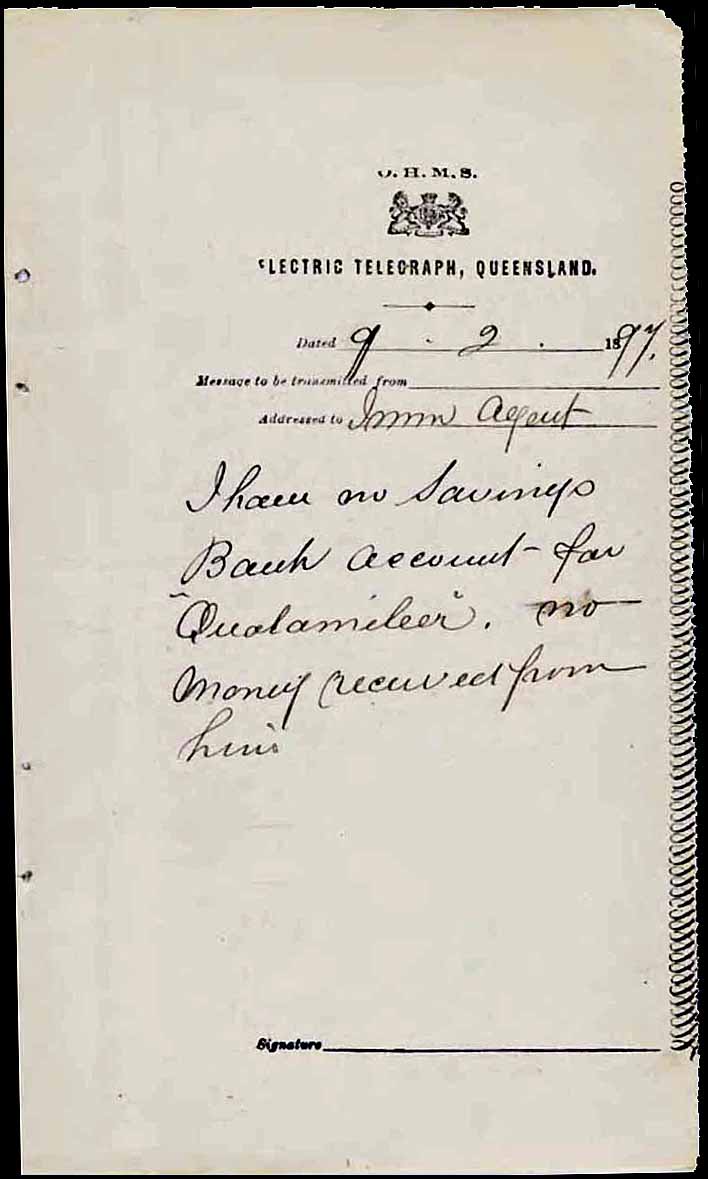 O. H. M. S.
ELECTRIC TELEGRAPH, QUEENSLAND.
Dated 9 . 2 . 1897.
Message to be transmitted from
Addressed to Imm Agent
I have no Savings
Bank account for
"Qualamileer". no
money received from
him
Signature